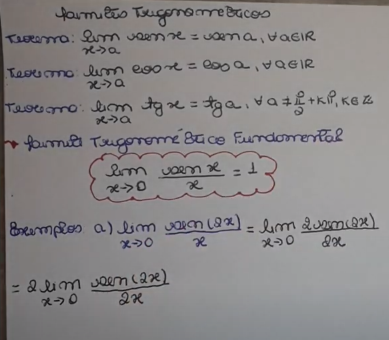 Limites Trigonométricos
Teorema: lim x→a sen x = sen a, ∀a∈IR
Teorema: lim x→a cos x = cos a, ∀a∈IR
Teorema: lim x→a tg x = tg a, ∀a ≠ π/2 + kπ, k∈Z
→ Limite Trigonométrico Fundamental
lim x→0 sen x / x = 1
Exemplos a) lim x→0 sen(2x) / x = lim x→0 2sen(2x) / 2x
= 2 lim x→0 sen(2x) / 2x